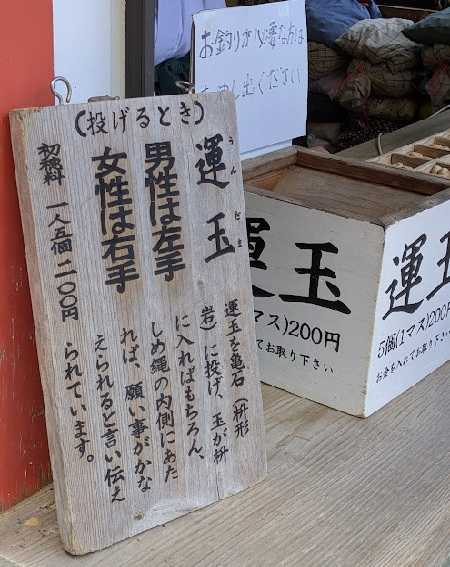 (投げるとき)
運玉
うんだま
男性は左手
女性は右手
初穂料 一人五個 二〇〇円
運玉を亀石(枡形
岩)に投げ、玉が枡
に入ればもちろん、
しめ縄の内側にあた
れば、願い事がかな
えられると言い伝え
られています。
お釣りが必要な方は
お申し出ください
運玉
1マス)200円
てお取り下さい
運玉
5個(1マス)200円
お金を入れてお取り下さい